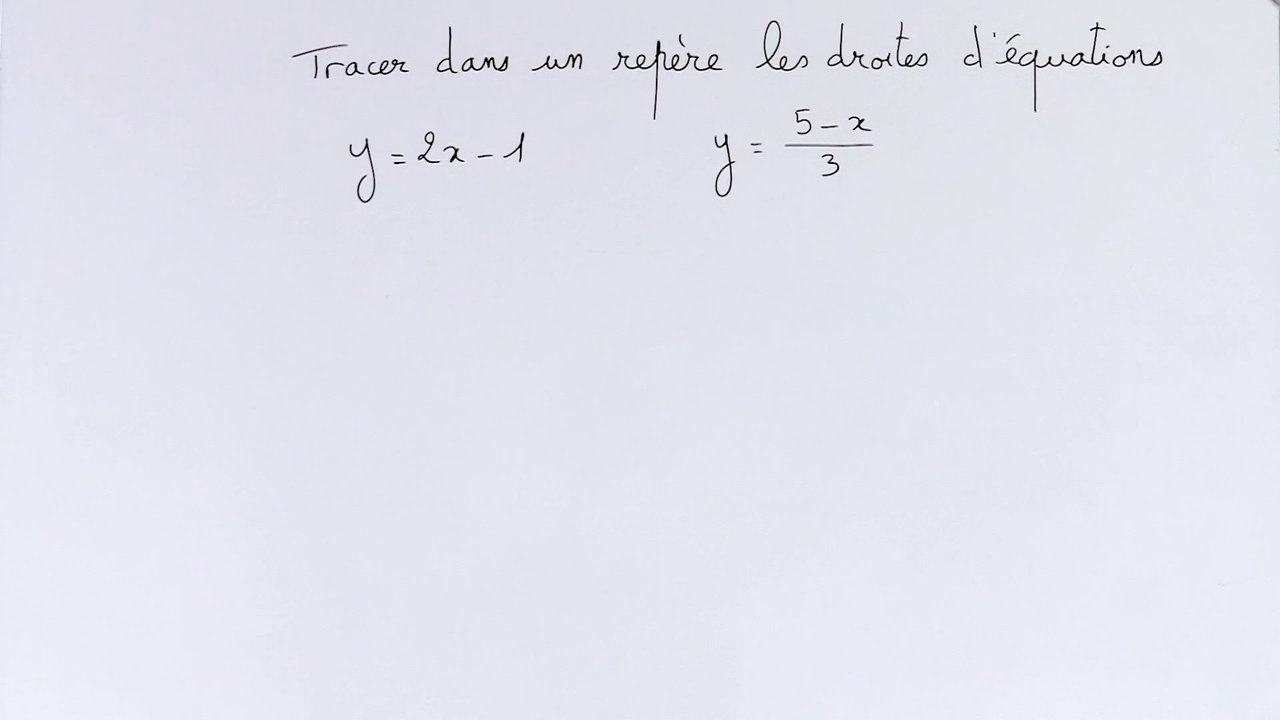 Tracer dans un repère les droites d'équations
y = 2x - 1 y = \frac{5 - x}{3}